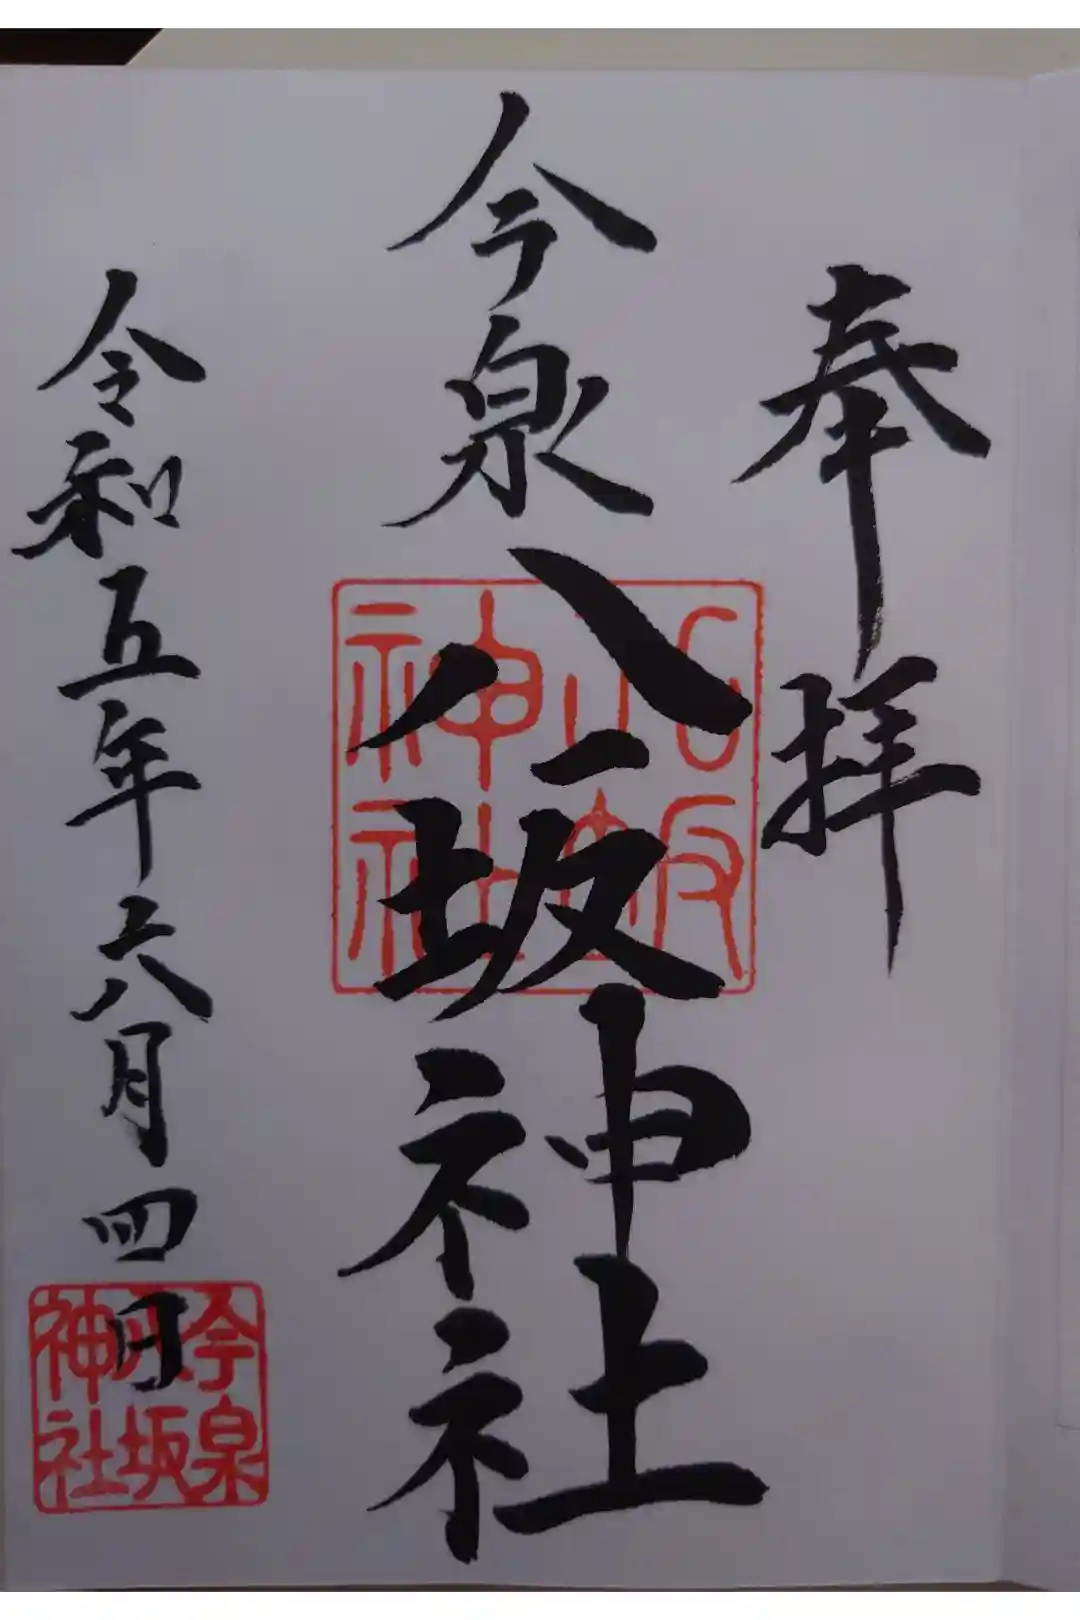 奉拝
今泉八坂神社
八坂神社
令和五年六月四日
今泉八坂神社